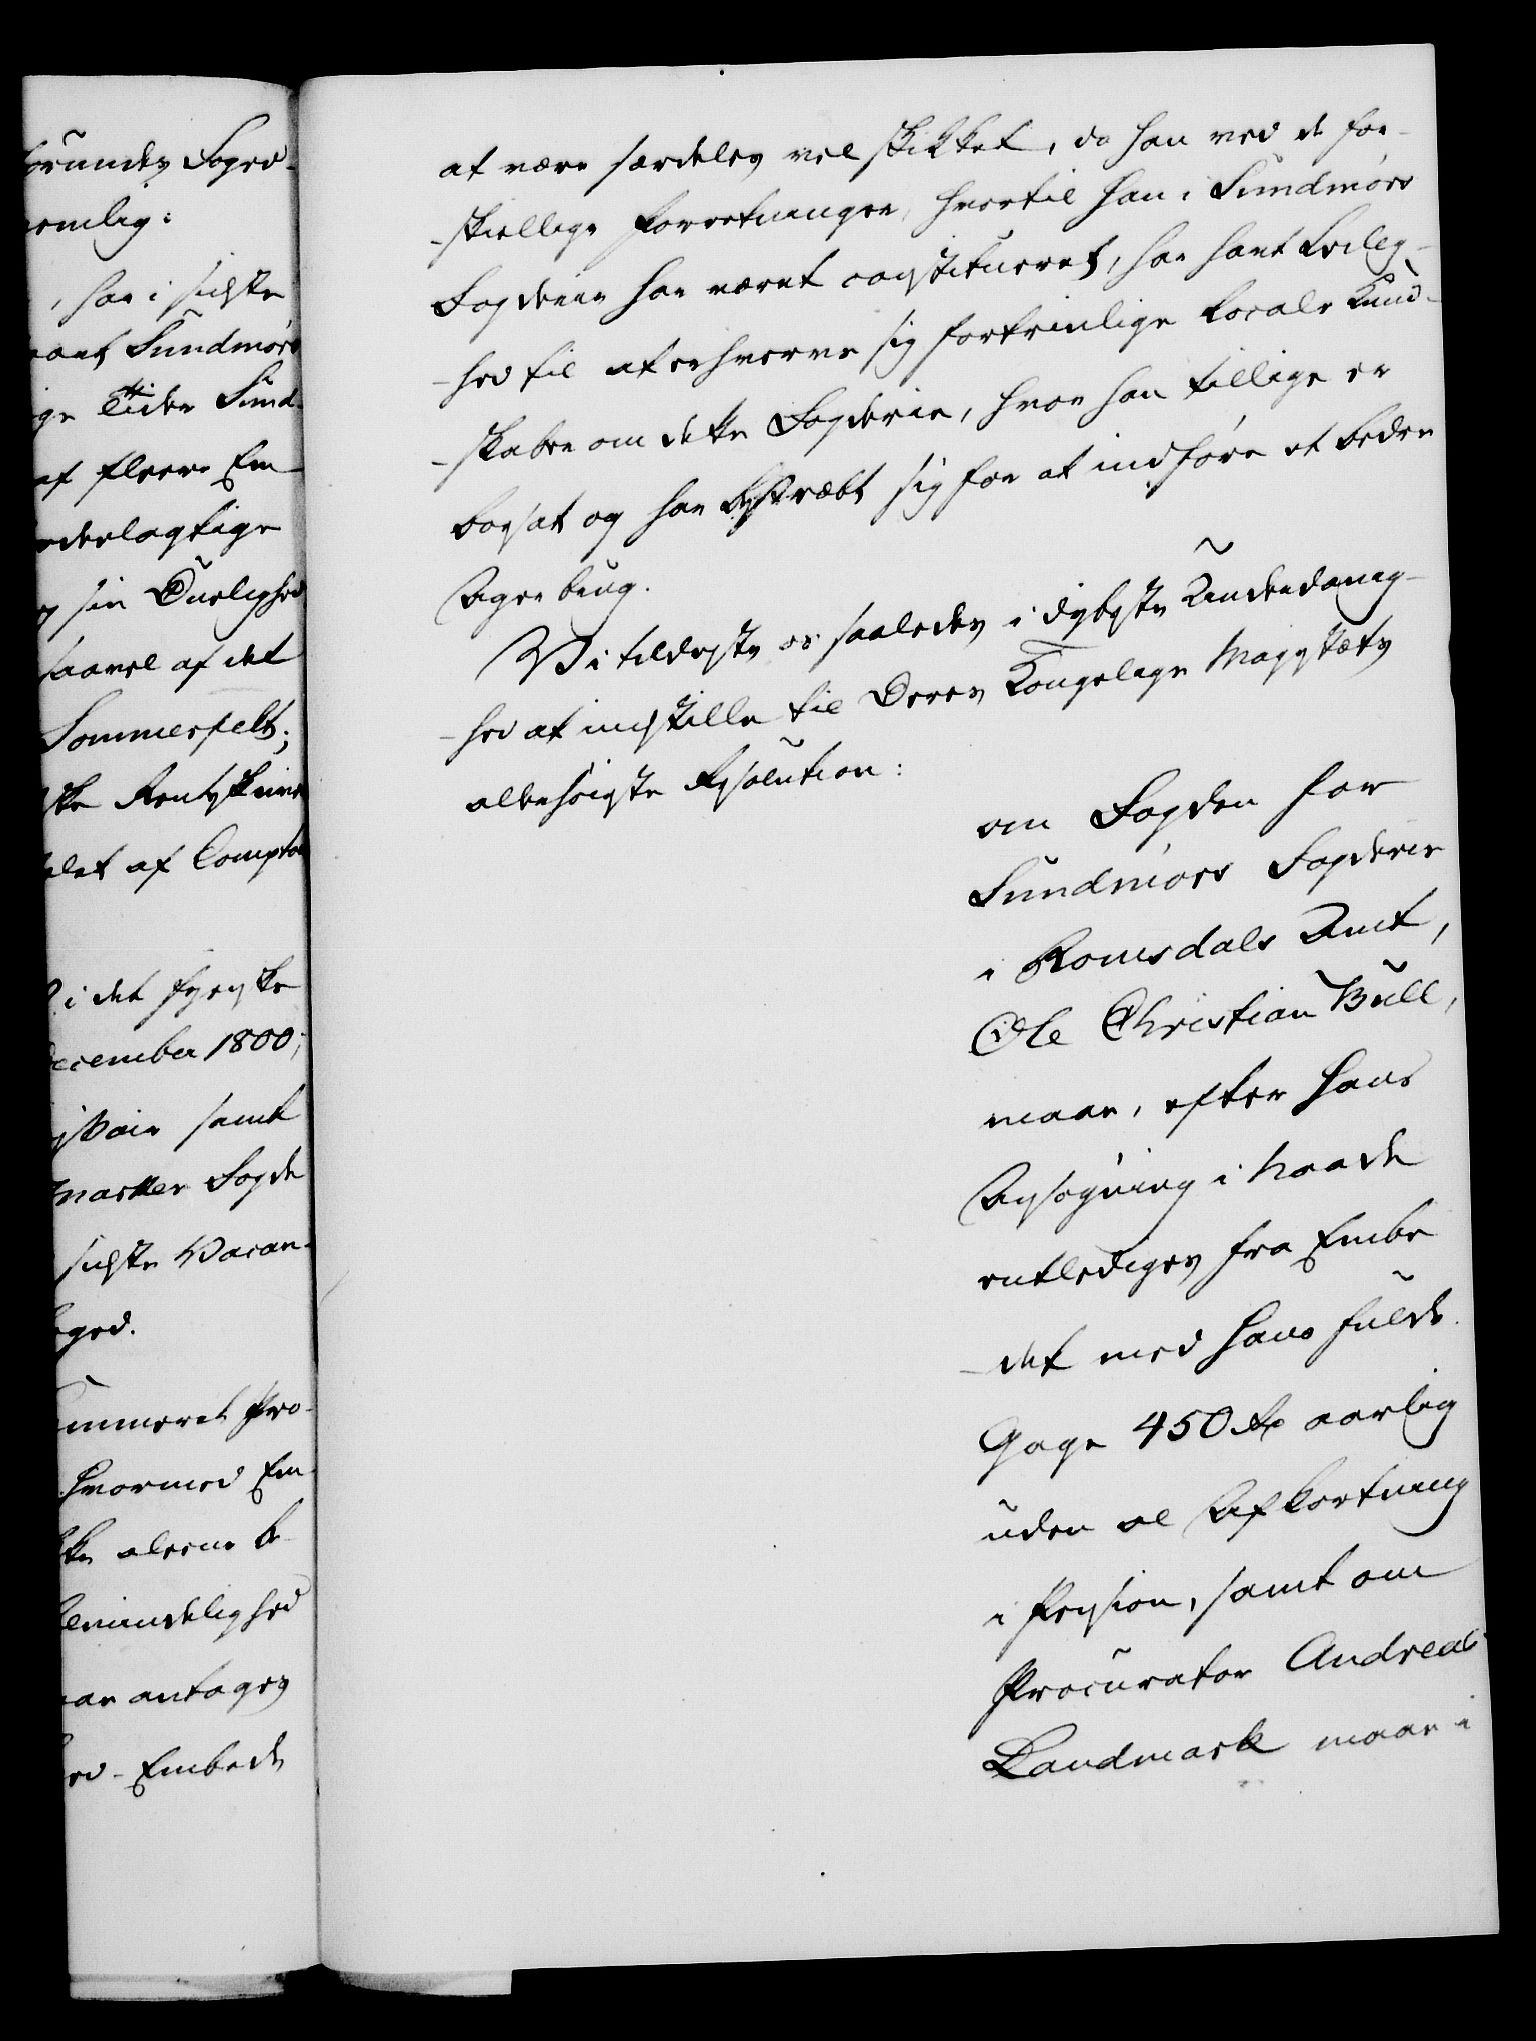 orundes Foged-
emlig:
, har i sidste
Sundmørs
ge Tider Sund-
af fleere Em-
deelagtige
sin Duelighed
saavel af det
Sommerfelt;
ske Rentskriver
af Comptoi
i det Fyenske
December 1800;
samt
marker Fogde
sidste Vacan-
oged.
ummeret Pro-
hvormed Em-
aleene be-
lemindelighed
antages
ed-Embede
at være særdeles vel skikket, da han ved de for-
-skiellige Forretninger, hvortil han i Sundmørs
Fogderie har været constitueret, har havt Leilig-
-hed til at erhverve sig fortrinlige Locale Kund-
-skaber om dette Fogderie, hvor han tillige er
bosat og har bestræbt sig for at indføre et bedre
Agerbrug.
Vi tilderste os saaledes i dybeste Underdanig-
-hed at indstille til Deres Kongelige Majestæts
allerhøieste Resolution:
om Fogden for
Sundmørs Fogderie
i Romsdals Amt,
Ole Christian Bull,
maae, efter hans
Ansøgning i Naade
entlediges fra Embe
-det med hans fulde
Gage 450 Rd aarlig
uden al Afkortning
i Pension, samt om
Procurator Andreas
Landmark maae i